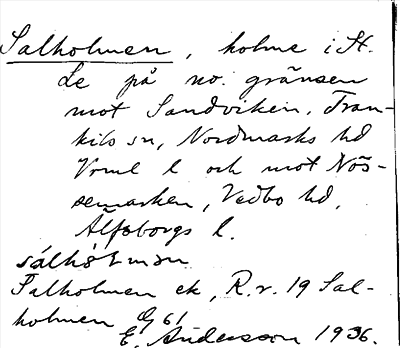 Salholmen, holme i St.
Le på no. gränsen
mot Sandviken, Tran-
kils sn, Nordmarks hd
Vrml l och mot Nös-
semarken, Vedbo hd,
Älfsborgs l.
Salholmen ek, R.r. 19 Sal-
holmen G 61
E. Andersson 1936.